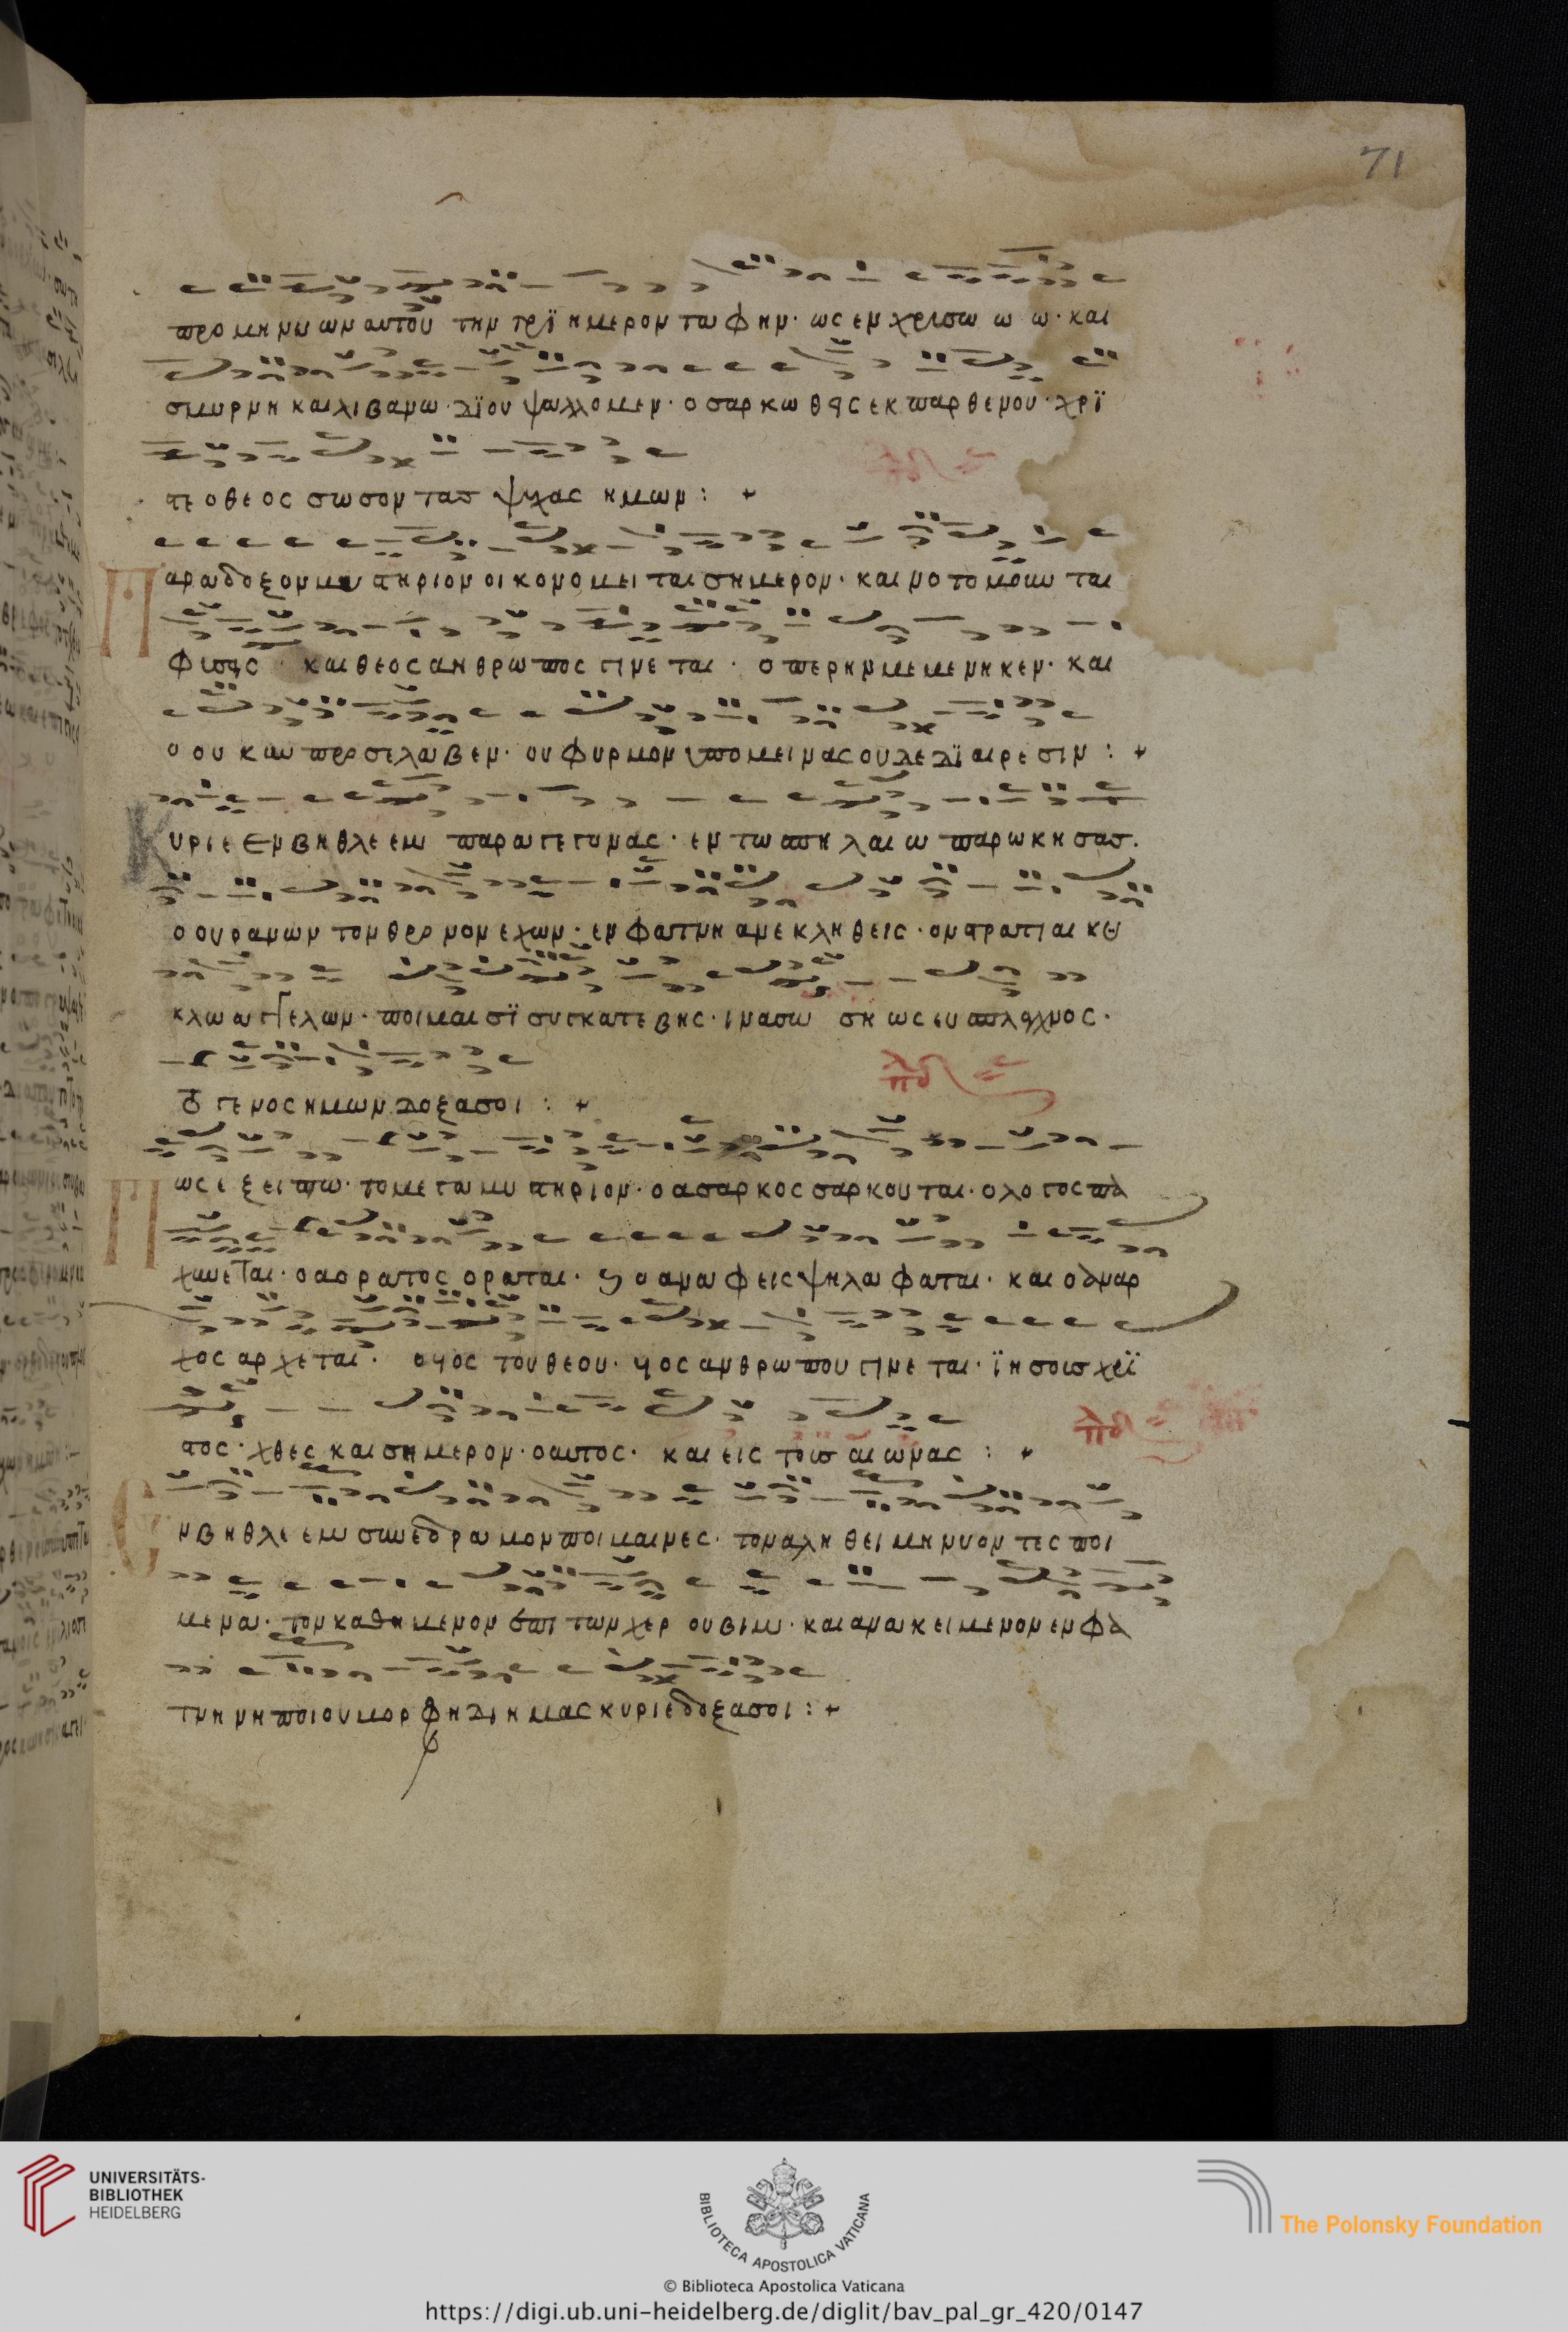 71
προ μη νυ ων αυτου την τρϊ ημερον τα φην· ως εν χρισω ω ω· και
σμυρνη και λιβανω· δϊ ου ψαλλομεν· ο σαρκωθεις εκ παρθενου· χρϊ
στε ο θεος σωσον τας ψυχας ημων : +
Παραδοξον μυστηριον οικονομει ται σημερον· και νο το μουν ται
φυσεις· και θεος ανθρωπος γινε ται· ο περ ην με με νη κεν· και
ο ουκ ην προσελαβεν· ου φυρμον υπομεινας ουδε δϊ αιρεσιν : +
Κυριε εν βηθλεεμ παραγεγονας· εν τω σπη λαι ω παρωκησας·
ο ουρανων τον θρο νον εχων· εν φατνη ανεκληθεις· ον στρατιαι κυ
κλω αγγελων· ποιμαι σϊ συγκατεβης· ινα σω ση ως ευσπλαχνος·
το γενος ημων δοξα σοι : +
Πως εξειπω· το μεγα μυστηριον· ο ασαρκος σαρκουται· ο λογος πα
χυνεται· ο αορατος οραται· ϗ ο αναφεις ψηλαφαται· και ο αναρ
χος αρχεται· ο υιος του θεου· υιος ανθρωπου γινε ται· ϊησους χρϊ
στος· χθες και σημερον· ο αυτος· και εις τους αιωνας : +
Εν βηθλεεμ συνεδραμον ποιμαινες· τον αληθει μηνυοντες ποι
μενα· τον καθημενον επι των χερουβιμ· και ανακειμενον εν φα
τνη νηπιου μορφη δι ημας κυριε δοξα σοι : +
UNIVERSITÄTS-
BIBLIOTHEK
HEIDELBERG
BIBLIOTECA APOSTOLICA VATICANA
The Polonsky Foundation
© Biblioteca Apostolica Vaticana
https://digi.ub.uni-heidelberg.de/diglit/bav_pal_gr_420/0147